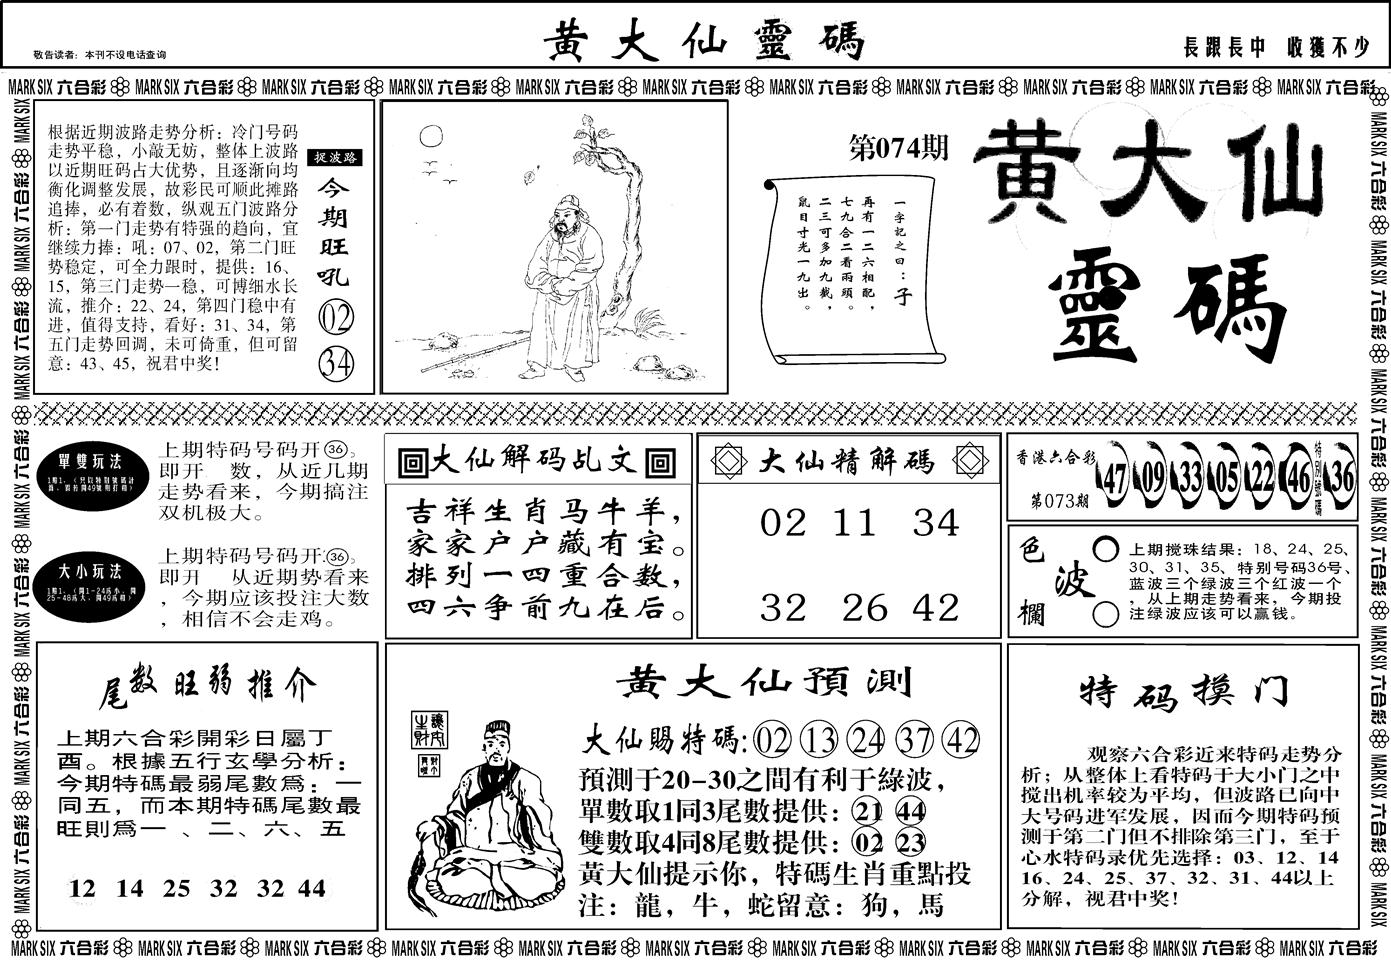 敬告读者：本刊不设电话查询
黄大仙靈碼
長跟長中 收獲不少
MARK SIX 六合彩 MARK SIX 六合彩 MARK SIX 六合彩 MARK SIX 六合彩 MARK SIX 六合彩 MARK SIX 六合彩 MARK SIX 六合彩 MARK SIX 六合彩 MARK SIX 六合彩 MARK SIX 六合彩 MARK SIX 六合彩
根据近期波路走势分析：冷门号码
走势平稳，小敲无妨，整体上波路
以近期旺码占大优势，且逐渐向均
衡化调整发展，故彩民可顺此摊路
追捧，必有着数，纵观五门波路分
析：第一门走势有特强的趋向，宜
继续力捧：吼：07、02，第二门旺
势稳定，可全力跟时，提供：16、
15，第三门走势一稳，可博细水长
流，推介：22、24，第四门稳中有
进，值得支持，看好：31、34，第
五门走势回调，未可倚重，但可留
意：43、45，祝君中奖!
捉波路
今期旺吼
02
34
第074期
一字記之曰：子
再有一二六相配，
七九合二看兩頭。
二三可多加九截，
鼠目寸光一九出。
黄大仙
靈碼
單雙玩法
上期特码号码开36。
即开 数，从近几期
走势看来，今期搞注
双机极大。
大小玩法
上期特码号码开:36。
即开 从近期势看来
，今期应该投注大数
，相信不会走鸡。
大仙解码乩文
吉祥生肖马牛羊，
家家户户藏有宝。
排列一四重合数，
四六争前九在后。
大仙精解碼
02 11 34
32 26 42
香港六合彩
第073期
47 09 33 05 22 46
特別號碼
36
色波欄
上期搅珠结果：18、24、25、
30、31、35、特别号码36号、
蓝波三个绿波三个红波一个
，从上期走势看来，今期投
注绿波应该可以赢钱。
尾数旺弱推介
上期六合彩開彩日屬丁
酉。根據五行玄學分析：
今期特碼最弱尾數爲：一
同五，而本期特碼尾數最
旺則爲一 、二、六、五
12 14 25 32 32 44
黄大仙預測
大仙賜特碼:02 13 24 37 42
預測于20-30之間有利于綠波，
單數取1同3尾數提供：21 44
雙數取4同8尾數提供：02 23
黃大仙提示你，特碼生肖重點投
注：龍，牛，蛇留意：狗，馬
特码摸门
观察六合彩近来特码走势分
析；从整体上看特码于大小门之中
搅出机率较为平均，但波路已向中
大号码进军发展，因而今期特码预
测于第二门但不排除第三门，至于
心水特码录优先选择：03、12、14
16、24、25、37、32、31、44以上
分解，祝君中奖!
MARK SIX 六合彩 MARK SIX 六合彩 MARK SIX 六合彩 MARK SIX 六合彩 MARK SIX 六合彩 MARK SIX 六合彩 MARK SIX 六合彩 MARK SIX 六合彩 MARK SIX 六合彩 MARK SIX 六合彩 MARK SIX 六合彩